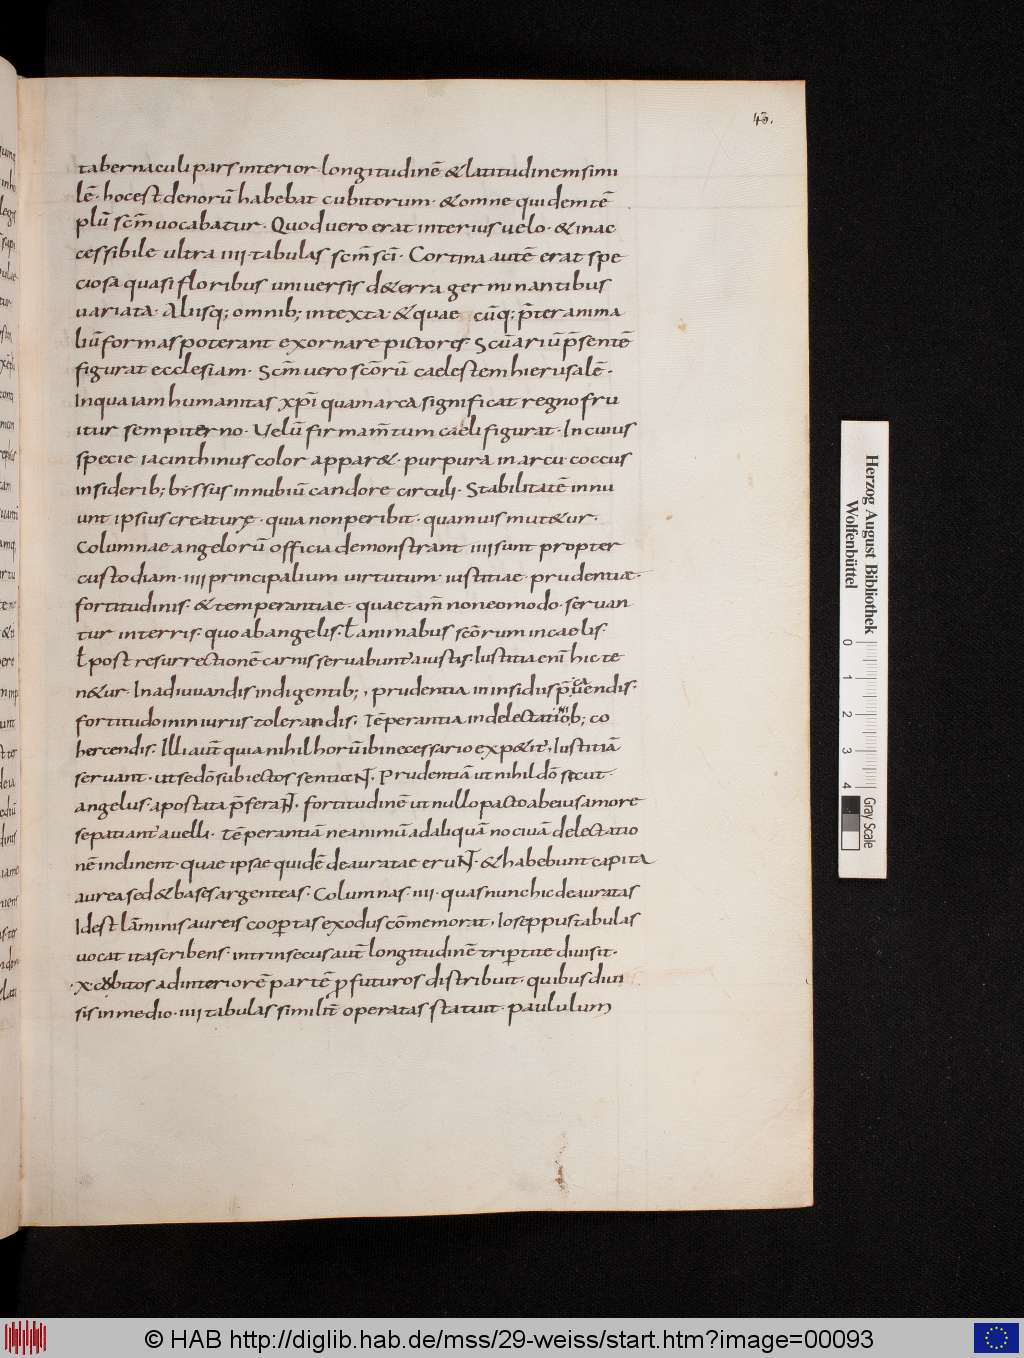 45.
tabernaculi pars interior longitudinē & latitudinem simi
lē· hoc est denorū habebat cubitorum· & omne quidem tē
plū scm̄ uocabatur· Quod uero erat interius uelo· & inac
cessibile ultra iiii· tabulas scm̄ scī· Cortina autē erat spe
ciosa quasi floribus uniuersis d&erra germinantibus
uariata· Aliisq; omnib; intexta· & quae cūq; p̄ter anima
liū formas poterant exornare pictores· Scm̄ariū p̄sentē
figurat ecclesiam· Scm̄ uero scōrū caelestem hierusalē·
In qua iam humanitas xp̄i quam arca significat regno fru
itur sempiterno· Uelū firmam̄tum caeli figurat· In cuius
specie iacinthinus color appar&· purpura in arcu coccus
in siderib; byssus in nubiū candore circuli· Stabilitatē innu
unt ipsius creaturę· quia non peribit· quamuis mut&ur·
Columnae angelorū officia demonstrant iiii sunt propter
custodiam· iiii principalium uirtutum· iustitiae· prudentiae·
fortitudinis· & temperantiae· quae tam̄ non eo modo· seruan
tur in terris· quo ab angelis· ł animabus scōrum in caelis·
ł post resurrectionē carnis seruabunt̄ a iustis· Iustitia enī hic te
n&ur· In adiuuandis indigentib;, prudentia in insidiis p̄cauendis·
fortitudo in iniuriis tolerandis· Tēperantia in delectationib; co
hercendis· Illi aut̄ quia nihil horū ibi necessario exp&it̄, Iustitiā
seruant· ut se dō subiectos sentiant· Prudentiā ut nihil dō sicut
angelus· apostata p̄ferant· fortitudinē ut nullo pacto ab eius amore
se patiant̄ auelli· Tēperantiā ne animū ad aliquā nociuā delectatio
nē inclinent· quae ipsae quidē deauratae erunt· & habebunt capita
aurea sed & bases argenteas· Columnas· iiii· quas nunc hic deauratas
Id est lām̄inis aureis coop̄tas exodus cōmemorat, Ioseppus tabulas
uocat ita scribens· intrinsecus aut̄ longitudinē trip̄tite diuisit·
·x· cubitos ad interiorē partē p̱ futuros distribuit· quibus diui
sis in medio· iiii tabulas similit̄ operatas statuit· paululum
Herzog August Bibliothek
Wolfenbüttel
0 1 2 3 4
Gray Scale
© HAB http://diglib.hab.de/mss/29-weiss/start.htm?image=00093